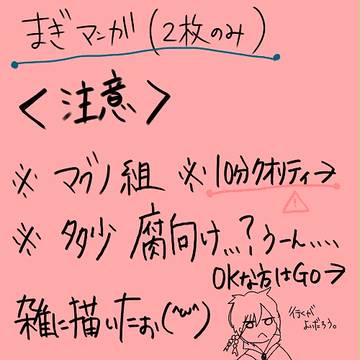 まぎマンガ(2枚のみ)
<注意>
※ マグノ組 ※10分クオリティ→
※ 多少 腐向け…?うーん……
OKな方はGO→
雑に描いたぉ(^ω^)
行くが
よいだろう。